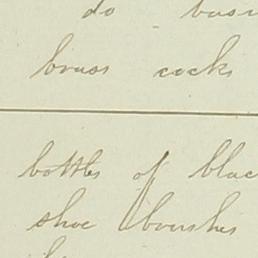 do
brass cocks
bottles of blac
shoe brushes